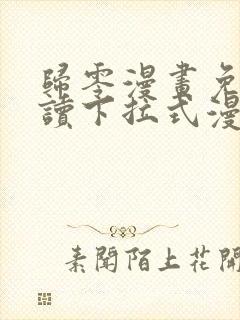 歸零漫畫免
讀下拉式漫
素聞陌上花開